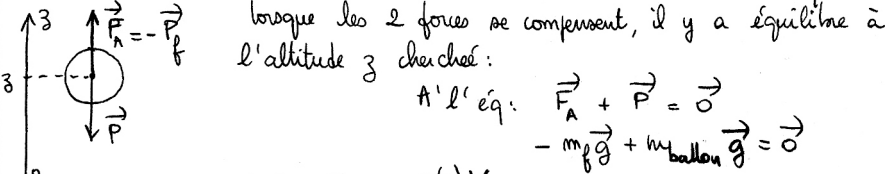 z
F_A = -P_f
z
P
lorsque les 2 forces se compensent, il y a équilibre à
l'altitude z cherchée :
A l'éq : F_A + P = 0
- m_f g + m_ballon g = 0